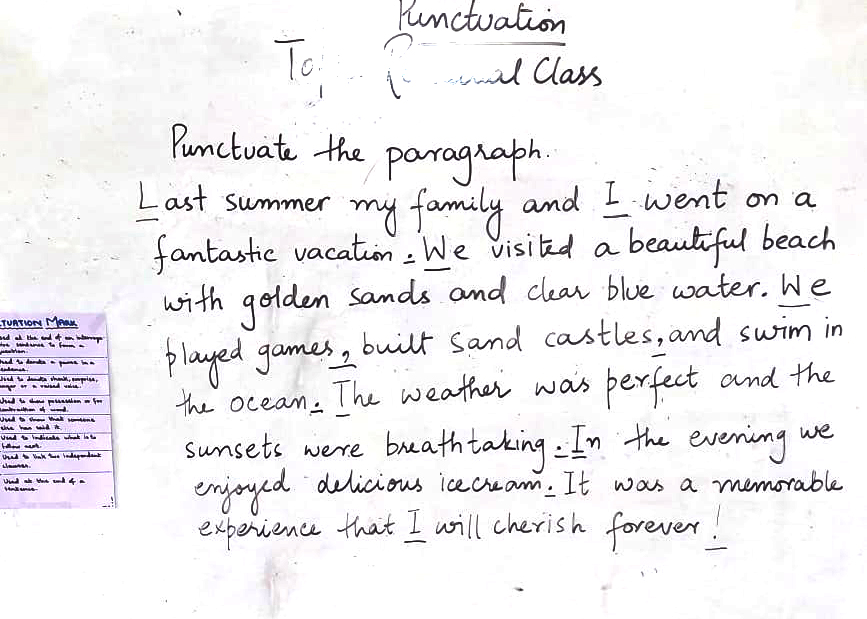 Punctuation
To
Class
Punctuate the paragraph.
Last summer my family and I went on a
fantastic vacation. We visited a beautiful beach
with golden sands and clear blue water. We
played games, built sand castles, and swim in
the ocean. The weather was perfect and the
sunsets were breathtaking. In the evening we
enjoyed delicious icecream. It was a memorable
experience that I will cherish forever!
TUATION MARK
at the end of an
sentence to form a
to denote a pause in a
sentence.
Used to denote shock, surprise,
anger or a raised voice.
Used to show possession or for
contraction of word.
Used to show that someone
else has said it.
Used to indicate what is to
follow next.
Used to link two independent
clauses.
Used at the end of a
sentence.